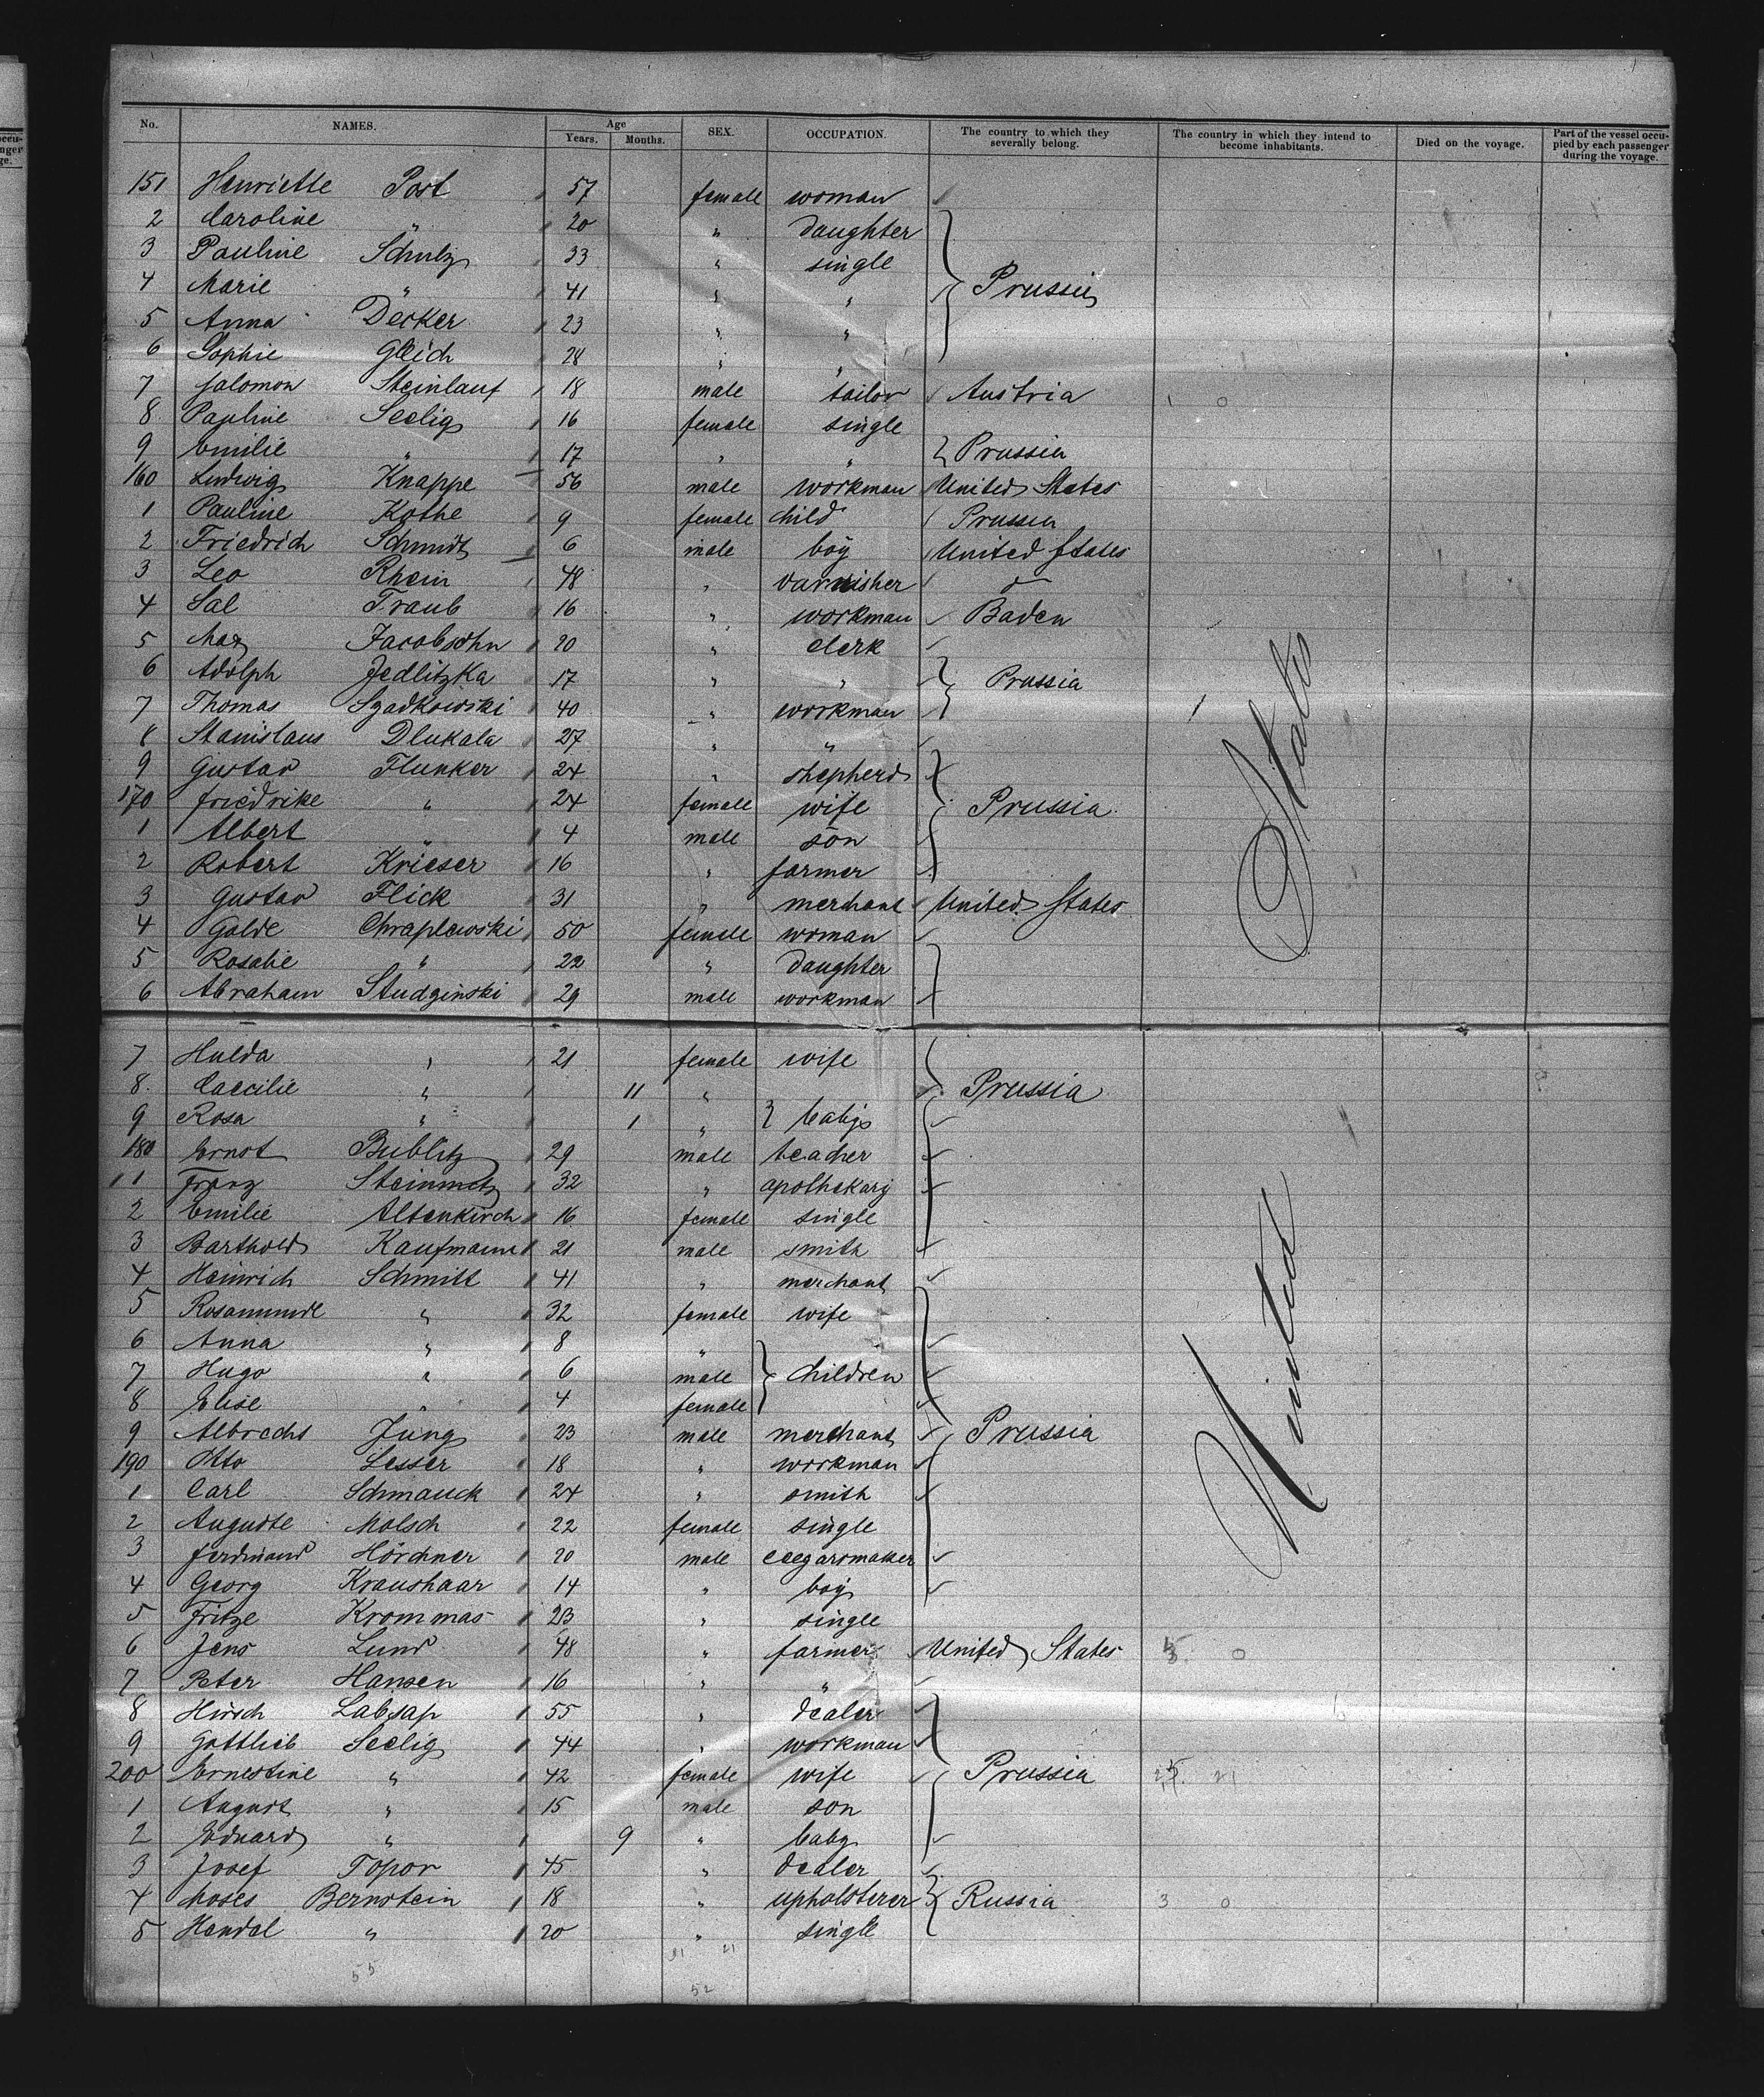 No. NAMES. Age Years. Months. SEX. OCCUPATION. The country to which they severally belong. The country in which they intend to become inhabitants. Died on the voyage. Part of the vessel occupied by each passenger during the voyage.
151 Henriette Post 57 female woman
2 Caroline " 20 " daughter
3 Pauline Schulz 33 " single
4 Marie " 41 " " Prussia
5 Anna Decker 23 " "
6 Sophie Gleich 28 " "
7 Salomon Steinlauf 18 male tailor Austria
8 Pauline Seelig 16 female single
9 Emilie " 17 " " Prussia
160 Ludwig Knappe 56 male workman United States
1 Pauline Kothe 9 female child Prussia
2 Friedrich Schmidt 6 male boy United States
3 Leo Rhein 48 " varnisher
4 Sal Traub 16 " workman Baden
5 Max Jacobsohn 20 " clerk
6 Adolph Jedlitzka 17 " " Prussia
7 Thomas Szadkowski 40 " workman
8 Stanislaus Dlukala 27 " "
9 Gustav Flunker 24 " shepherd
170 Friedrike " 24 female wife Prussia
1 Albert " 4 male son
2 Robert Krieser 16 " farmer
3 Gustav Flick 31 " merchant United States
4 Golde Chraplewski 50 female woman
5 Rosalie " 22 " daughter
6 Abraham Studginski 29 male workman
7 Hulda " 21 female wife
8 Caecilie " 11 " Prussia
9 Rosa " 1 " babys
180 Ernst Bublitz 29 male teacher
1 Franz Steinmetz 32 " apothekary
2 Emilie Altenkirch 16 female single
3 Barthold Kaufmann 21 male smith
4 Heinrich Schmitt 41 " merchant
5 Rosamunde " 32 female wife
6 Anna " 8 "
7 Hugo " 6 male children
8 Elise " 4 female
9 Albrecht Jung 23 male merchant Prussia
190 Otto Lesser 18 " workman
1 Carl Schmauck 24 " smith
2 Auguste Molsch 22 female single
3 Ferdinand Hörchner 20 male cegarsmaker
4 Georg Kraushaar 14 " boy
5 Fritze Krommas 23 " single
6 Jens Lund 48 " farmer United States
7 Peter Hansen 16 " "
8 Hirsch Labsap 55 " dealer
9 Gottlieb Seelig 44 " workman
200 Ernestine " 42 female wife Prussia
1 August " 15 male son
2 Eduard " 9 " baby
3 Josef Topor 45 " dealer
4 Moses Bernstein 18 " upholsterer Russia 3 0
5 Hendel " 20 " single
United States
55
52